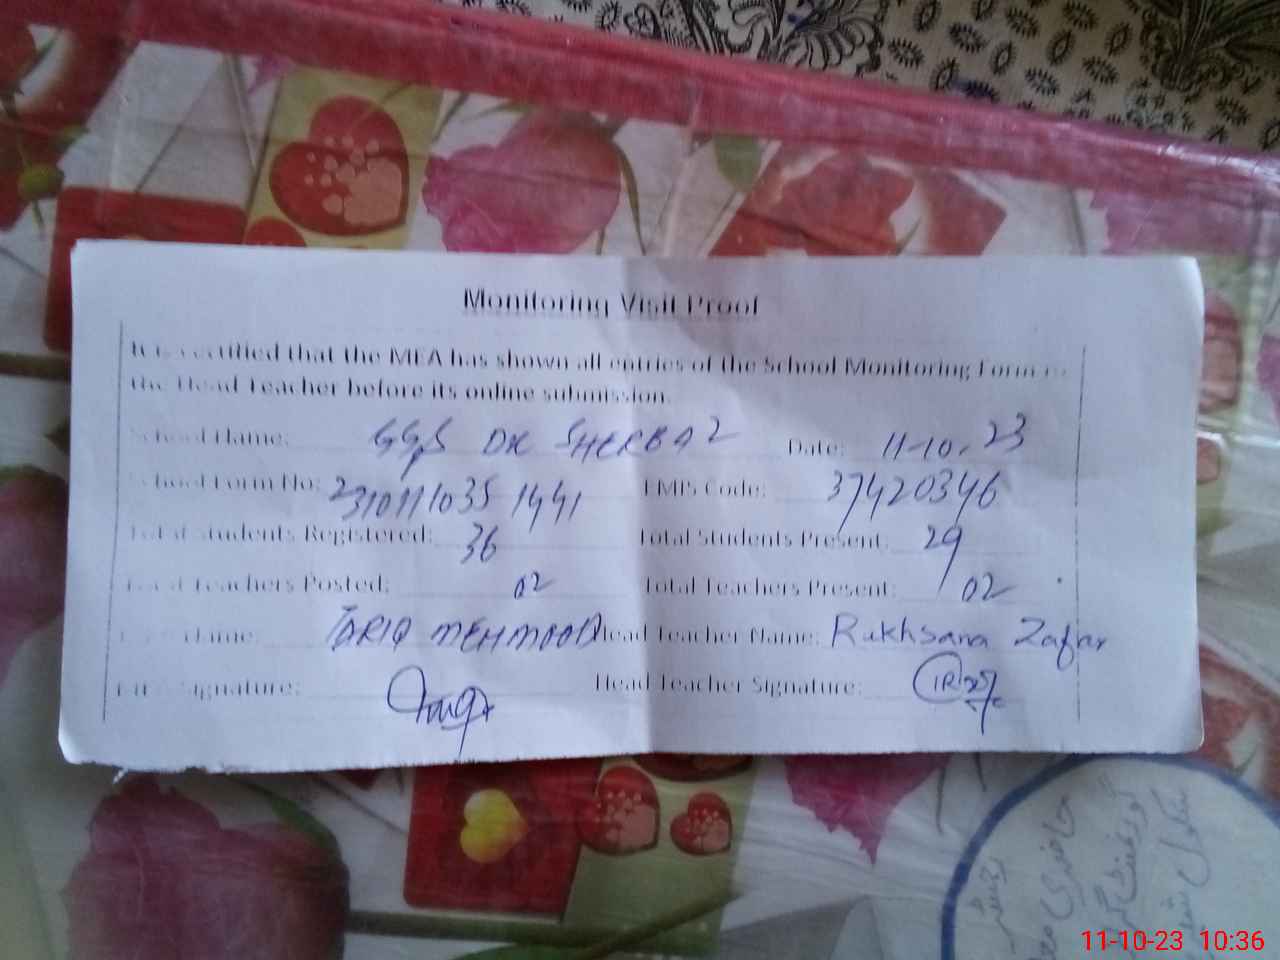 Monitoring Visit Proof
It is certified that the MEA has shown all entries of the School Monitoring Form to
the Head Teacher before its online submission.
School Name: GGPS DK SHERBAZ Date: 11-10-23
School Form No: 2310111035 1441 EMIS Code: 37420346
Total Students Registered: 36 Total Students Present: 29
Total Teachers Posted: 02 Total Teachers Present: 02
Name: TARIQ MEHMOOD Head Teacher Name: Rukhsana Zafar
Signature: Head Teacher Signature:
رجسٹر
حاضری
گورنمنٹ
سکول
11-10-23 10:36